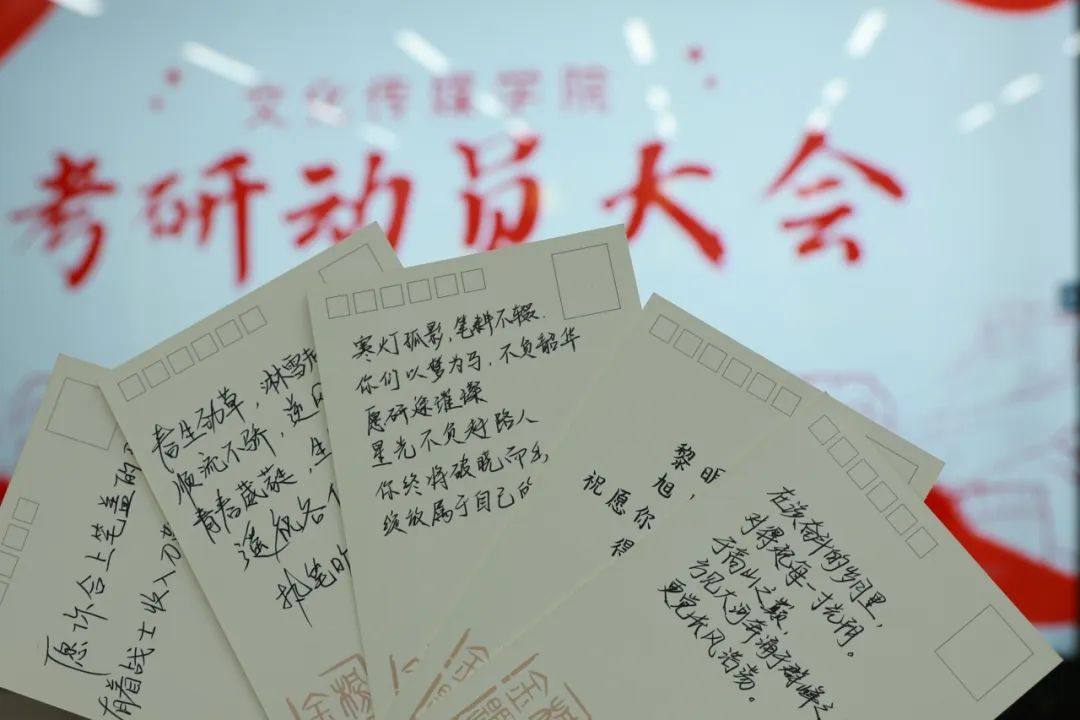 文化传媒学院
考研动员大会
愿你合上笔盖的
有着战士收入刀
春生劲草，淋雪
顺流不骄，逆
青春葳蕤，生
遥祝各
执笔时
寒灯孤影，笔耕不辍.
你们以梦为马，不负韶华
愿研途璀璨
星光不负赶路人
你终将破晓而出
绽放属于自己的
黎昕
旭，
祝愿你
得
在该奋斗的岁月里，
对得起每一寸光阴。
于高山之巅，
方见大河奔涌于群峰之
更觉长风浩荡。